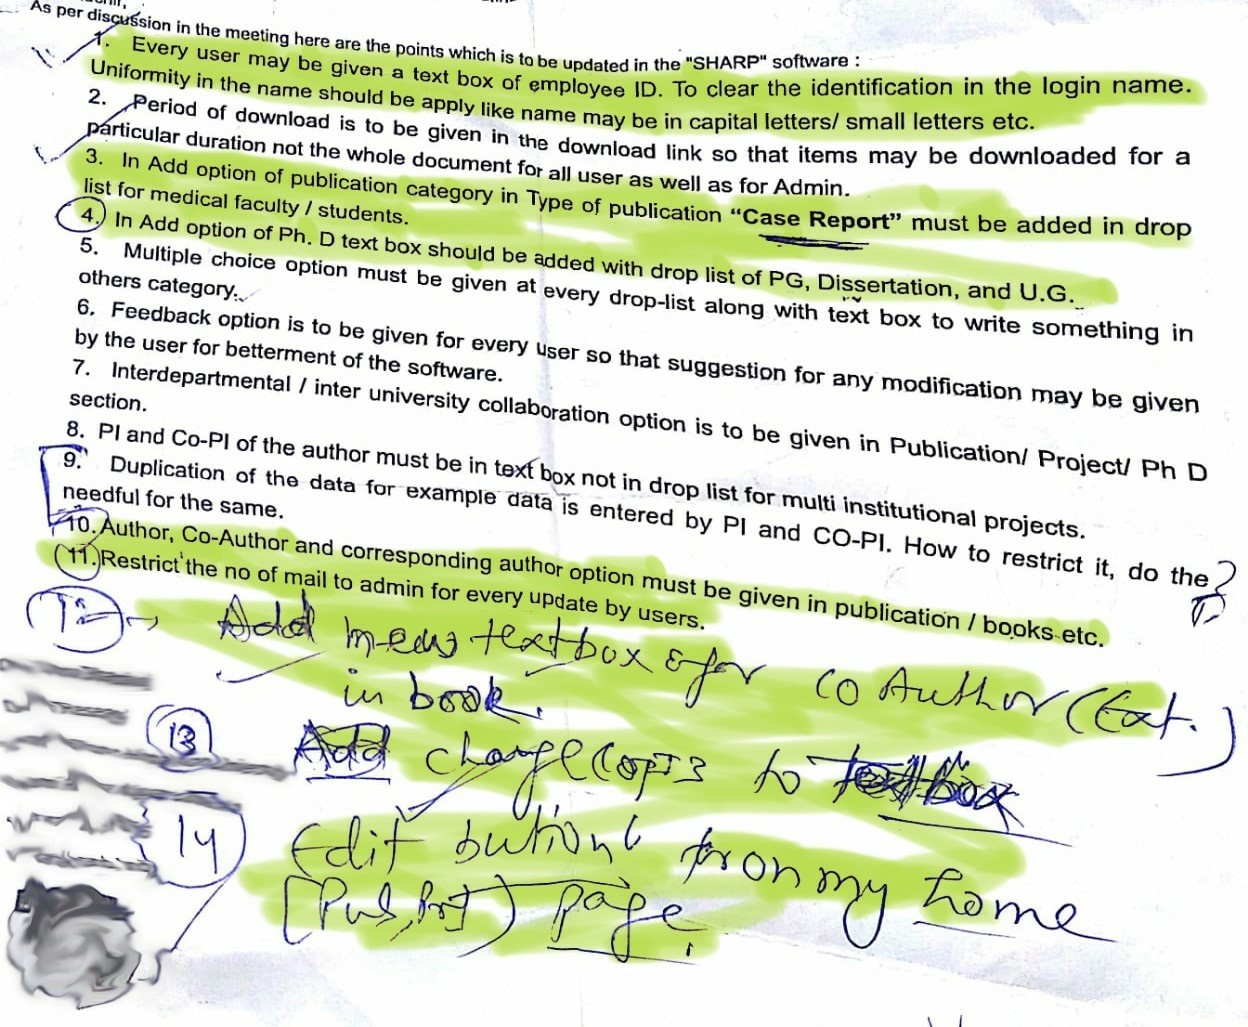 As per discussion in the meeting here are the points which is to be updated in the "SHARP" software :
1. Every user may be given a text box of employee ID. To clear the identification in the login name.
Uniformity in the name should be apply like name may be in capital letters/ small letters etc.
2. Period of download is to be given in the download link so that items may be downloaded for a
particular duration not the whole document for all user as well as for Admin.
3. In Add option of publication category in Type of publication “Case Report” must be added in drop
list for medical faculty / students.
4. In Add option of Ph. D text box should be added with drop list of PG, Dissertation, and U.G.
5. Multiple choice option must be given at every drop-list along with text box to write something in
others category.
6. Feedback option is to be given for every user so that suggestion for any modification may be given
by the user for betterment of the software.
7. Interdepartmental / inter university collaboration option is to be given in Publication/ Project/ Ph D
section.
8. PI and Co-PI of the author must be in text box not in drop list for multi institutional projects.
9. Duplication of the data for example data is entered by PI and CO-PI. How to restrict it, do the
needful for the same. ?
10. Author, Co-Author and corresponding author option must be given in publication / books etc.
11. Restrict the no of mail to admin for every update by users.
12 Add new textbox for CO Author (Ext.)
in book.
13 Add change to textbox
14 Edit button from my home
page.